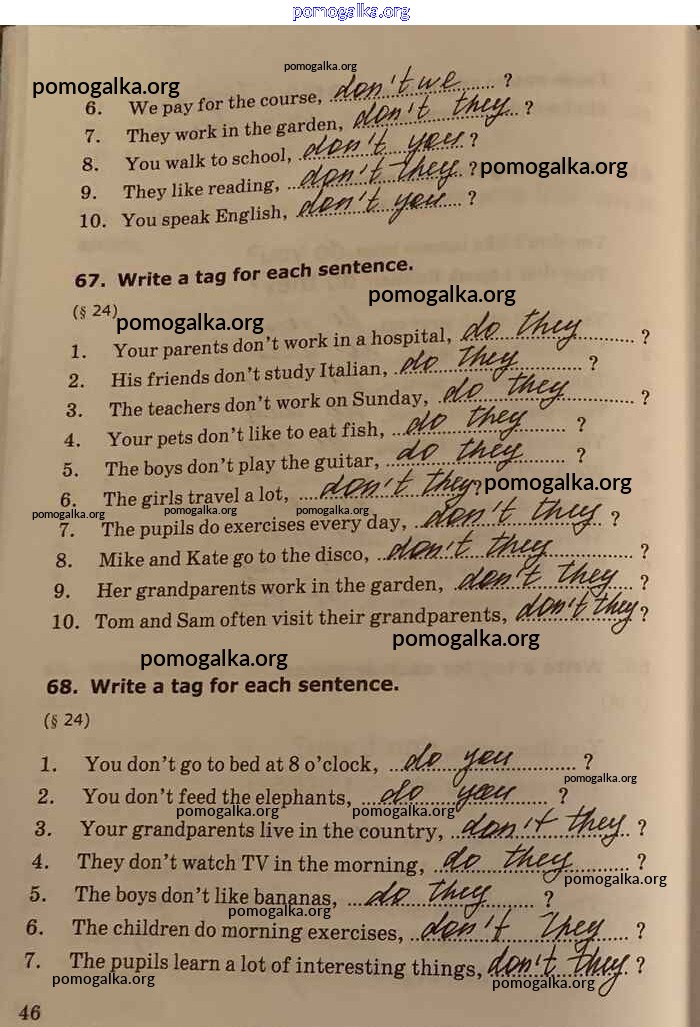 pomogalka.org
pomogalka.org
pomogalka.org
6. We pay for the course, don't we ?
7. They work in the garden, don't they ?
8. You walk to school, don't you ?
9. They like reading, don't they ? pomogalka.org
10. You speak English, don't you ?
67. Write a tag for each sentence.
pomogalka.org
(§ 24)
pomogalka.org
1. Your parents don't work in a hospital, do they ?
2. His friends don't study Italian, do they ?
3. The teachers don't work on Sunday, do they ?
4. Your pets don't like to eat fish, do they ?
5. The boys don't play the guitar, do they ?
6. The girls travel a lot, don't they? pomogalka.org
pomogalka.org pomogalka.org pomogalka.org
7. The pupils do exercises every day, don't they ?
8. Mike and Kate go to the disco, don't they ?
9. Her grandparents work in the garden, don't they ?
10. Tom and Sam often visit their grandparents, don't they ?
pomogalka.org
pomogalka.org
68. Write a tag for each sentence.
(§ 24)
1. You don't go to bed at 8 o'clock, do you ?
pomogalka.org
2. You don't feed the elephants, do you ?
pomogalka.org pomogalka.org
3. Your grandparents live in the country, don't they ?
4. They don't watch TV in the morning, do they ?
pomogalka.org
5. The boys don't like bananas, do they ?
pomogalka.org
6. The children do morning exercises, don't they ?
7. The pupils learn a lot of interesting things, don't they ?
pomogalka.org pomogalka.org
46